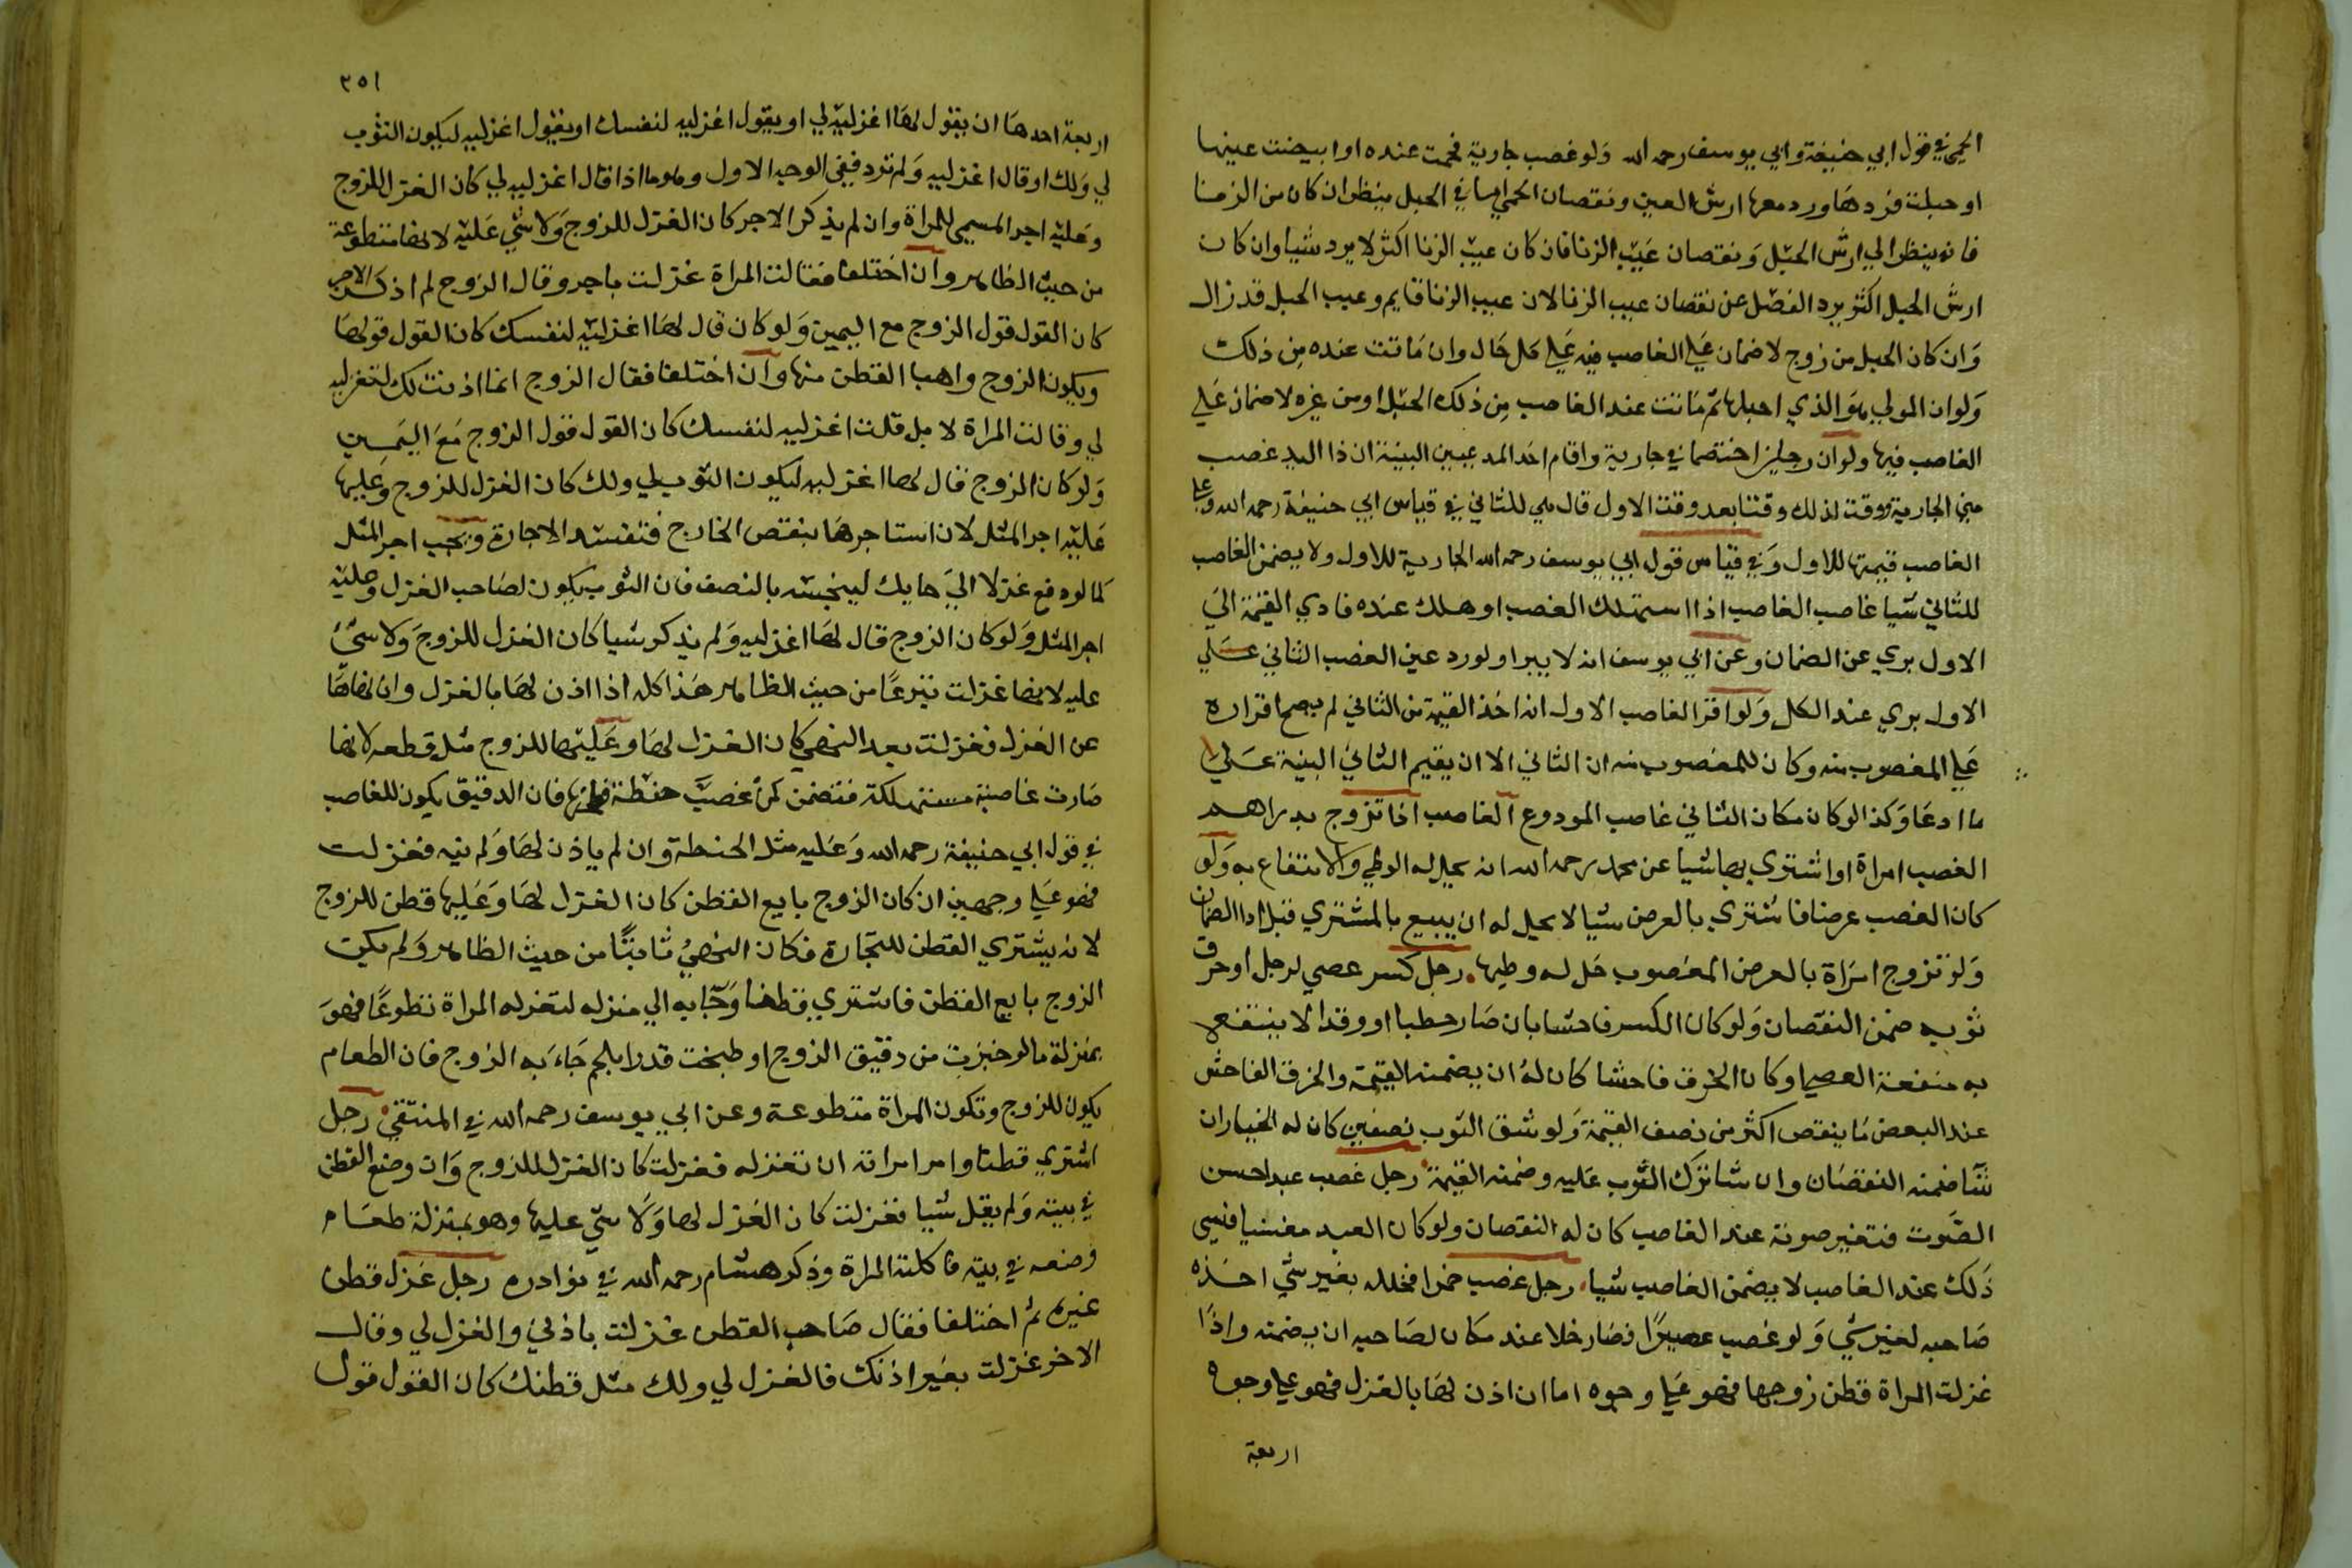 الحمي في قول ابي حنيفة وابي يوسف رحمه الله ولو غصب جارية فحمت عنده او ابيضت عينها
او حبلت فردها ورد معها ارش العين ونقصان الحمي اما في الحبل ينظر ان كان من الزنا
فانه ينظر الي ارش الحبل ونقصان عيب الزنا فان كان عيب الزنا اكثر لا يرد شيا وان كان
ارش الحبل اكثر يرد الفضل عن نقصان عيب الزنا لان عيب الزنا قايم وعيب الحبل قد زال
وان كان الحبل من زوج لا ضمان علي الغاصب فيه علي كل حال وان ماتت عنده من ذلك
ولو ان المولي هو الذي احبلها ثم ماتت عند الغاصب من ذلك الحبل او من غيره لا ضمان علي
الغاصب فيها ولو ان رجلين اختصما في جارية واقام احد المدعيين البينة ان ذا اليد غصب
مني الجارية ووقت لذلك وقتا بعد وقت الاول قال هي للثاني في قياس ابي حنيفة رحمه الله وعلي
الغاصب قيمتها للاول وفي قياس قول ابي يوسف رحمه الله الجارية للاول ولا يضمن الغاصب
للثاني شيا غاصب الغاصب اذا استهلك الغصب او هلك عنده فادي القيمة الي
الاول بري عن الضمان وعن ابي يوسف انه لا يبرا ولو رد عين الغصب الثاني علي
الاول بري عند الكل ولو اقر الغاصب الاول انه اخذ القيمة من الثاني لم يصح اقراره
علي المغصوب منه وكان للمغصوب منه ان الثاني الا ان يقيم الثاني البينة علي
ما ادعا وكذا لو كان مكان الثاني غاصب المودوع الغاصب اذا تزوج بدراهم
الغصب امراة او اشتري بها شيا عن محمد رحمه الله انه يحل له الوطي والانتفاع به ولو
كان الغصب عرضا فاشتري بالعرض شيا لا يحل له ان يبيع بالمشتري قبل ادا الضمان
ولو تزوج امراة بالعرض المغصوب حل له وطيها رجل كسر عصي لرجل او خرق
ثوبه ضمن النقصان ولو كان الكسر فاحشا بان صار حطبا او وقدا لا ينتفع
به منفعة العصي او كان الخرق فاحشا كان له ان يضمنه القيمة والخرق الفاحش
عند البعض ما ينقص اكثر من نصف القيمة ولو شق الثوب نصفين كان له الخيار ان
شا ضمنه النقصان وان شا ترك الثوب عليه وضمنه القيمة رجل غصب عبدا حسن
الصوت فتغير صوته عند الغاصب كان له النقصان ولو كان العبد مغنيا فنسي
ذلك عند الغاصب لا يضمن الغاصب شيا رجل غصب خمرا فخلله بغير شي اخذه
صاحبه لغير شي ولو غصب عصيرا فصار خلا عنده كان لصاحبه ان يضمنه واذا
غزلت المراة قطن زوجها فهو علي وجوه اما ان اذن لها بالغزل فهو علي وجوه
اربعة
٢٥١
اربعة احدها ان يقول لها اغزليه لي او يقول اغزليه لنفسك او يقول اغزليه ليكون الثوب
لي ولك او قال اغزليه ولم تزد ففي الوجه الاول وهو ما اذا قال اغزليه لي كان الغزل للزوج
وعليه اجر المسمي للمراة وان لم يذكر الاجر كان الغزل للزوج ولا شي عليه لانها متطوعة
من حيث الظاهر وان اختلفا فقالت المراة غزلت باجر وقال الزوج لم اذكر الاجر
كان القول قول الزوج مع اليمين ولو كان قال لها اغزليه لنفسك كان القول قولها
ويكون الزوج واهبا القطن منها وان اختلفا فقال الزوج انما اذنت لك لتغزليه
لي وقالت المراة لا بل قلت اغزليه لنفسك كان القول قول الزوج مع اليمين
ولو كان الزوج قال لها اغزليه ليكون الثوب لي ولك كان الغزل للزوج وعليها
عليه اجر المثل لان استاجرها بنقص الخارج فتفسد الاجارة ويجب اجر المثل
كما لو دفع غزلا الي حايك لينجسه بالنصف فان الثوب يكون لصاحب الغزل وعليه
اجر المثل ولو كان الزوج قال لها اغزليه ولم يذكر شيا كان الغزل للزوج ولا شئ
عليه لانها غزلت تبرعا من حيث الظاهر هذا كله اذا اذن لها بالغزل وان نهاها
عن الغزل فغزلت بعد النهي كان الغزل لها وعليها للزوج مثل قطعه لانها
صارت غاصبة مستهلكة فتضمن كمن غصب حنطة فطحنها فان الدقيق يكون للغاصب
في قول ابي حنيفة رحمه الله وعليه مثل الحنطة وان لم ياذن لها ولم ينه فغزلت
فهو علي وجهين ان كان الزوج بايع القطن كان الغزل لها وعليها قطن للزوج
لانه يشتري القطن للتجارة فكان النهي ثابتا من حيث الظاهر ولم يكن
الزوج بايع القطن فاشتري قطنا وجا به الي منزله لتغزله المراة تطوعا فهو
بمنزلة ما لو خبزت من دقيق الزوج او طبخت قدرا بلحم جاء به الزوج فان الطعام
يكون للزوج وتكون المراة متطوعة وعن ابي يوسف رحمه الله في المنتقي رجل
اشتري قطنا وامر امراته ان تغزله فغزلت كان الغزل للزوج وان وضع القطن
في بيته ولم يقل شيا فغزلت كان الغزل لها ولا شي عليها وهو بمنزلة طعام
وضعه في بيته فاكلته المراة وذكر هشام رحمه الله في نوادره رجل غزل قطن
غيره ثم اختلفا فقال صاحب القطن غزلت باذني والغزل لي وقال
الاخر غزلت بغير اذنك فالغزل لي ولك مثل قطنك كان القول قول